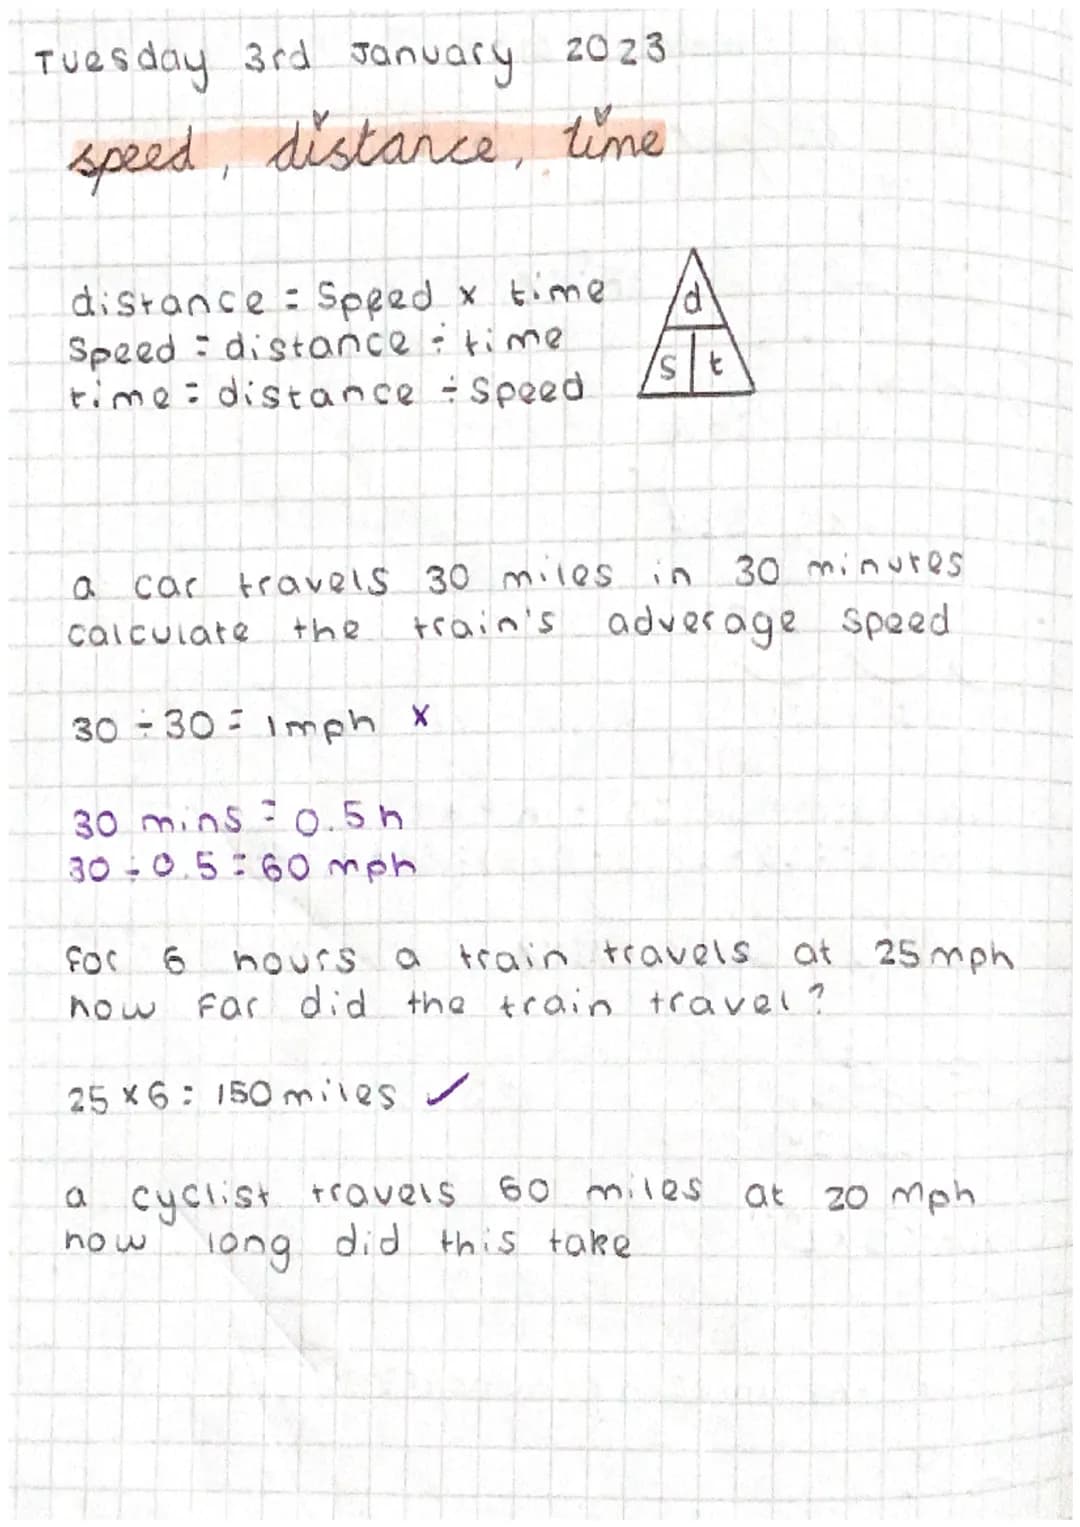 Tuesday 3rd January 2023
speed, distance, time
distance = speed x time
Speed = distance ÷ time
time = distance ÷ speed
d
s t
a car travels 30 miles in 30 minutes
calculate the train's adverage speed
30 ÷ 30 = 1mph x
30 mins = 0.5h
30 ÷ 0.5 = 60 mph
for 6 hours a train travels at 25mph
how far did the train travel?
25 x 6 = 150 miles ✓
a cyclist travels 60 miles at 20 mph
how long did this take